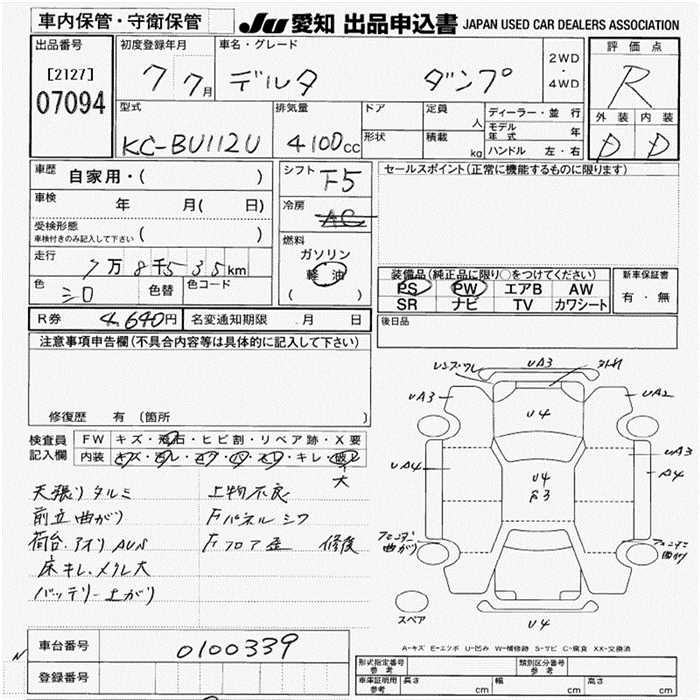 車内保管・守衛保管
JU 愛知 出品申込書 JAPAN USED CAR DEALERS ASSOCIATION
出品番号
[2127]
07094
初度登録年月
7 7月
車名・グレード
デルタ ダンプ
2WD
・
4WD
評価点
R
外装 内装
D D
型式
KC-BU112U
排気量
4100cc
ドア
形状
定員
人
積載
kg
ディーラー・並行
モデル年式 年
ハンドル 左・右
車歴
自家用・( )
車検
年 月( 日)
受検形態
車検付きのみ記入して下さい ( )
走行
7万8千535km
色
シロ
色替
色コード
シフト
F5
冷房
AC
燃料
ガソリン
軽油
( )
セールスポイント(正常に機能するものに限ります)
装備品(純正品に限り○をつけてください)
PS PW エアB AW
SR ナビ TV カワシート
新車保証書
有・無
後日品
R券 4,640円 名変通知期限 月 日
注意事項申告欄(不具合内容等は具体的に記入して下さい)
修復歴 有 (箇所 )
検査員
記入欄
FW キズ・飛石・ヒビ割・リペア跡・X要
内装
キレ
大
天張りタルミ 上物不良
前立曲がり Fパネルシワ
荷台.アオリAUS Fフロア歪 修復
床キレ.メクレ大
バッテリー上がり
UA3
UA3
U4
UA2
UA4
U4
UA3
A4
フェンダー曲がり
フェンダー曲がり
スペア
U4
A-キズ E-エクボ U-凹み W-補修跡 S-サビ C-腐食 XX-交換済
車台番号 0100339
登録番号
N
形式指定番号
参考
類別区分番号
参考
車庫証明用
参考
長さ cm 幅 cm 高さ cm